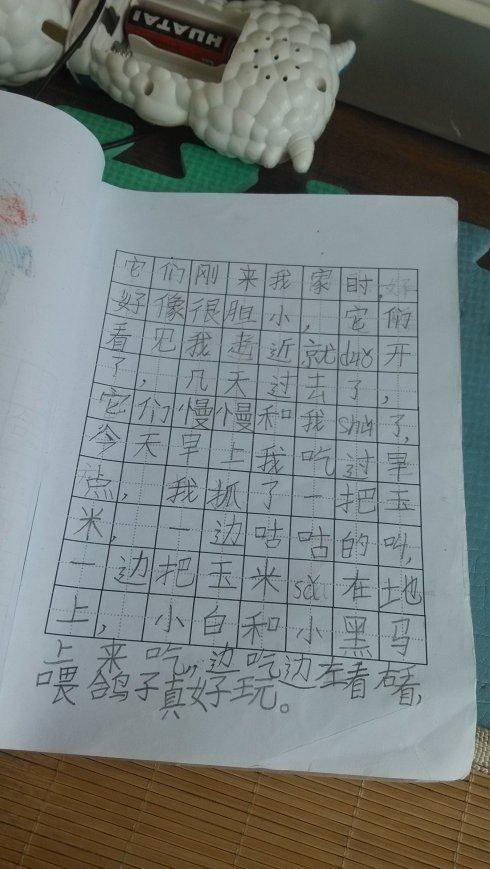 HUATAI
它们刚来我家时,
好像很胆小,它们
看见我走近就duǒ开
了,几天过去了,
它们慢慢和我shú了,
今天早上我吃过早
点,我抓了一把玉
米,一边咕咕的叫,
一边把玉米sǎ在地
上,小白和小黑马
上来吃,边吃边左看右看,
喂鸽子真好玩。